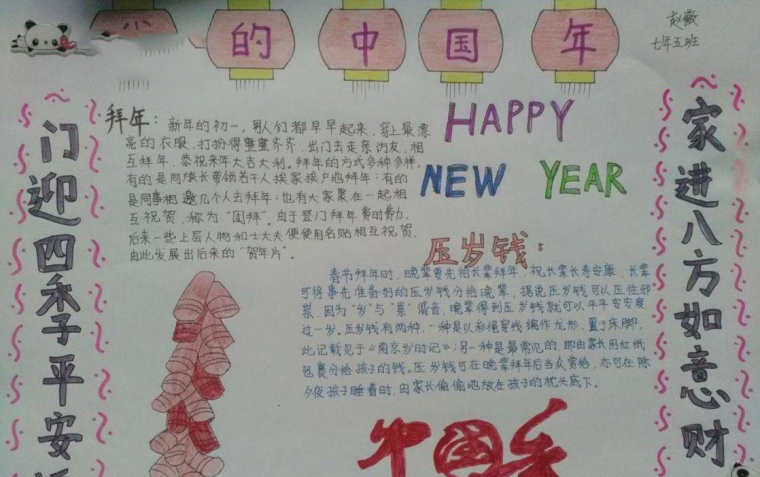 的中国年
赵薇
七年五班
门迎四季平安
家进八方如意财
HAPPY
NEW YEAR
拜年：
新年的初一，人们都早早起来，穿上最漂
亮的衣服，打扮得整整齐齐，出门去走亲访友，相
互拜年，恭祝来年大吉大利。拜年的方式多种多样，
有的是同族长带领若干人挨家挨户地拜年；有的
是同事相邀几个人去拜年；也有大家聚在一起相
互祝贺，称为“团拜”。由于登门拜年费时费力，
后来一些上层人物和士大夫便使用名贴相互祝贺，
由此发展出后来的“贺年片”。
压岁钱：
春节拜年时，晚辈要先给长辈拜年，祝长辈长寿安康，长辈
可将事先准备好的压岁钱分给晚辈，据说压岁钱可以压住邪
祟，因为“岁”与“祟”谐音，晚辈得到压岁钱就可以平平安安度
过一岁。压岁钱有两种，一种是以彩绳穿线编作龙形，置于床脚，
此记载见于《燕京岁时记》；另一种是最常见的，即由家长用红纸
包裹分给孩子的钱。压岁钱可在晚辈拜年后当众赏给，亦可在除
夕夜孩子睡着时，由家长偷偷地放在孩子的枕头底下。
中国